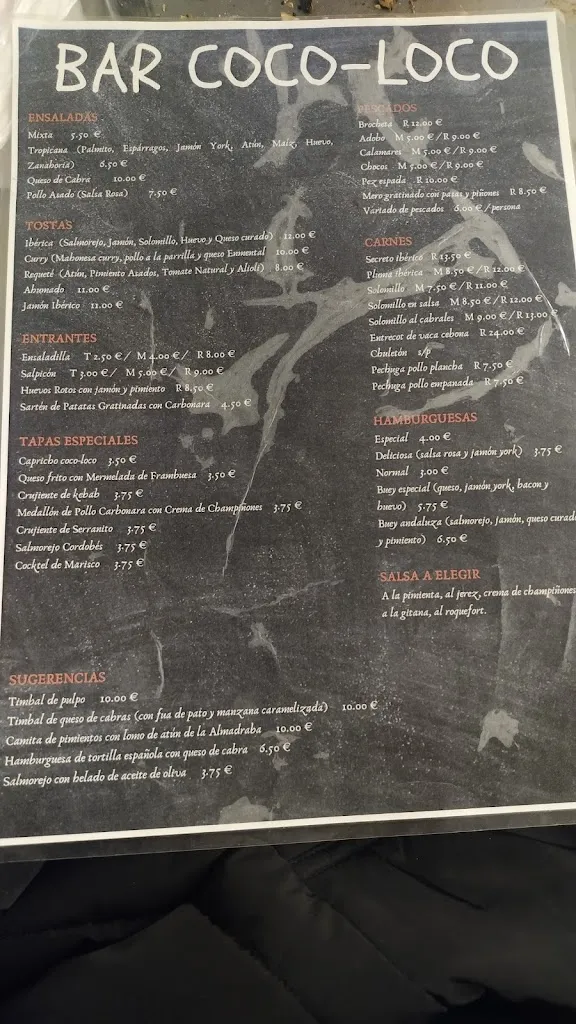 BAR COCO-LOCO
ENSALADAS
Mixta 5.50 €
Tropicana (Palmito, Espárragos, Jamón York, Atún, Maíz, Huevo,
Zanahoria) 6.50 €
Queso de Cabra 10.00 €
Pollo Asado (Salsa Rosa) 7.50 €
TOSTAS
Ibérica (Salmorejo, Jamón, Solomillo, Huevo y Queso curado) 12.00 €
Curry (Mahonesa curry, pollo a la parrilla y queso Emmental 10.00 €
Requeté (Atún, Pimiento Asados, Tomate Natural y Alioli) 8.00 €
Ahumado 11.00 €
Jamón Ibérico 11.00 €
ENTRANTES
Ensaladilla T 2.50 € / M 4.00 € / R 8.00 €
Salpicón T 3.00 € / M 5.00 € / R 9.00 €
Huevos Rotos con jamón y pimiento R 8.50 €
Sartén de Patatas Gratinadas con Carbonara 4.50 €
TAPAS ESPECIALES
Capricho coco-loco 3.50 €
Queso frito con Mermelada de Frambuesa 3.50 €
Crujiente de kebab 3.75 €
Medallón de Pollo Carbonara con Crema de Champiñones 3.75 €
Crujiente de Serranito 3.75 €
Salmorejo Cordobés 3.75 €
Cocktel de Marisco 3.75 €
SUGERENCIAS
Timbal de pulpo 10.00 €
Timbal de queso de cabras (con fua de pato y manzana caramelizada) 10.00 €
Camita de pimientos con lomo de atún de la Almadraba 10.00 €
Hamburguesa de tortilla española con queso de cabra 6.50 €
Salmorejo con helado de aceite de oliva 3.75 €
PESCADOS
Brocheta R 12.00 €
Adobo M 5.00 € / R 9.00 €
Calamares M 5.00 € / R 9.00 €
Chocos M 5.00 € / R 9.00 €
Pez espada R 10.00 €
Mero gratinado con pasas y piñones R 8.50 €
Variado de pescados 6.00 € / persona
CARNES
Secreto ibérico R 13.50 €
Pluma ibérica M 8.50 € / R 12.00 €
Solomillo M 7.50 € / R 11.00 €
Solomillo en salsa M 8.50 € / R 12.00 €
Solomillo al cabrales M 9.00 € / R 13.00 €
Entrecot de vaca cebona R 24.00 €
Chuletón s/p
Pechuga pollo plancha R 7.50 €
Pechuga pollo empanada R 7.50 €
HAMBURGUESAS
Especial 4.00 €
Deliciosa (salsa rosa y jamón york) 3.75 €
Normal 3.00 €
Buey especial (queso, jamón york, bacon y
huevo) 5.75 €
Buey andaluza (salmorejo, jamón, queso curado
y pimiento) 6.50 €
SALSA A ELEGIR
A la pimienta, al jerez, crema de champiñones,
a la gitana, al roquefort.